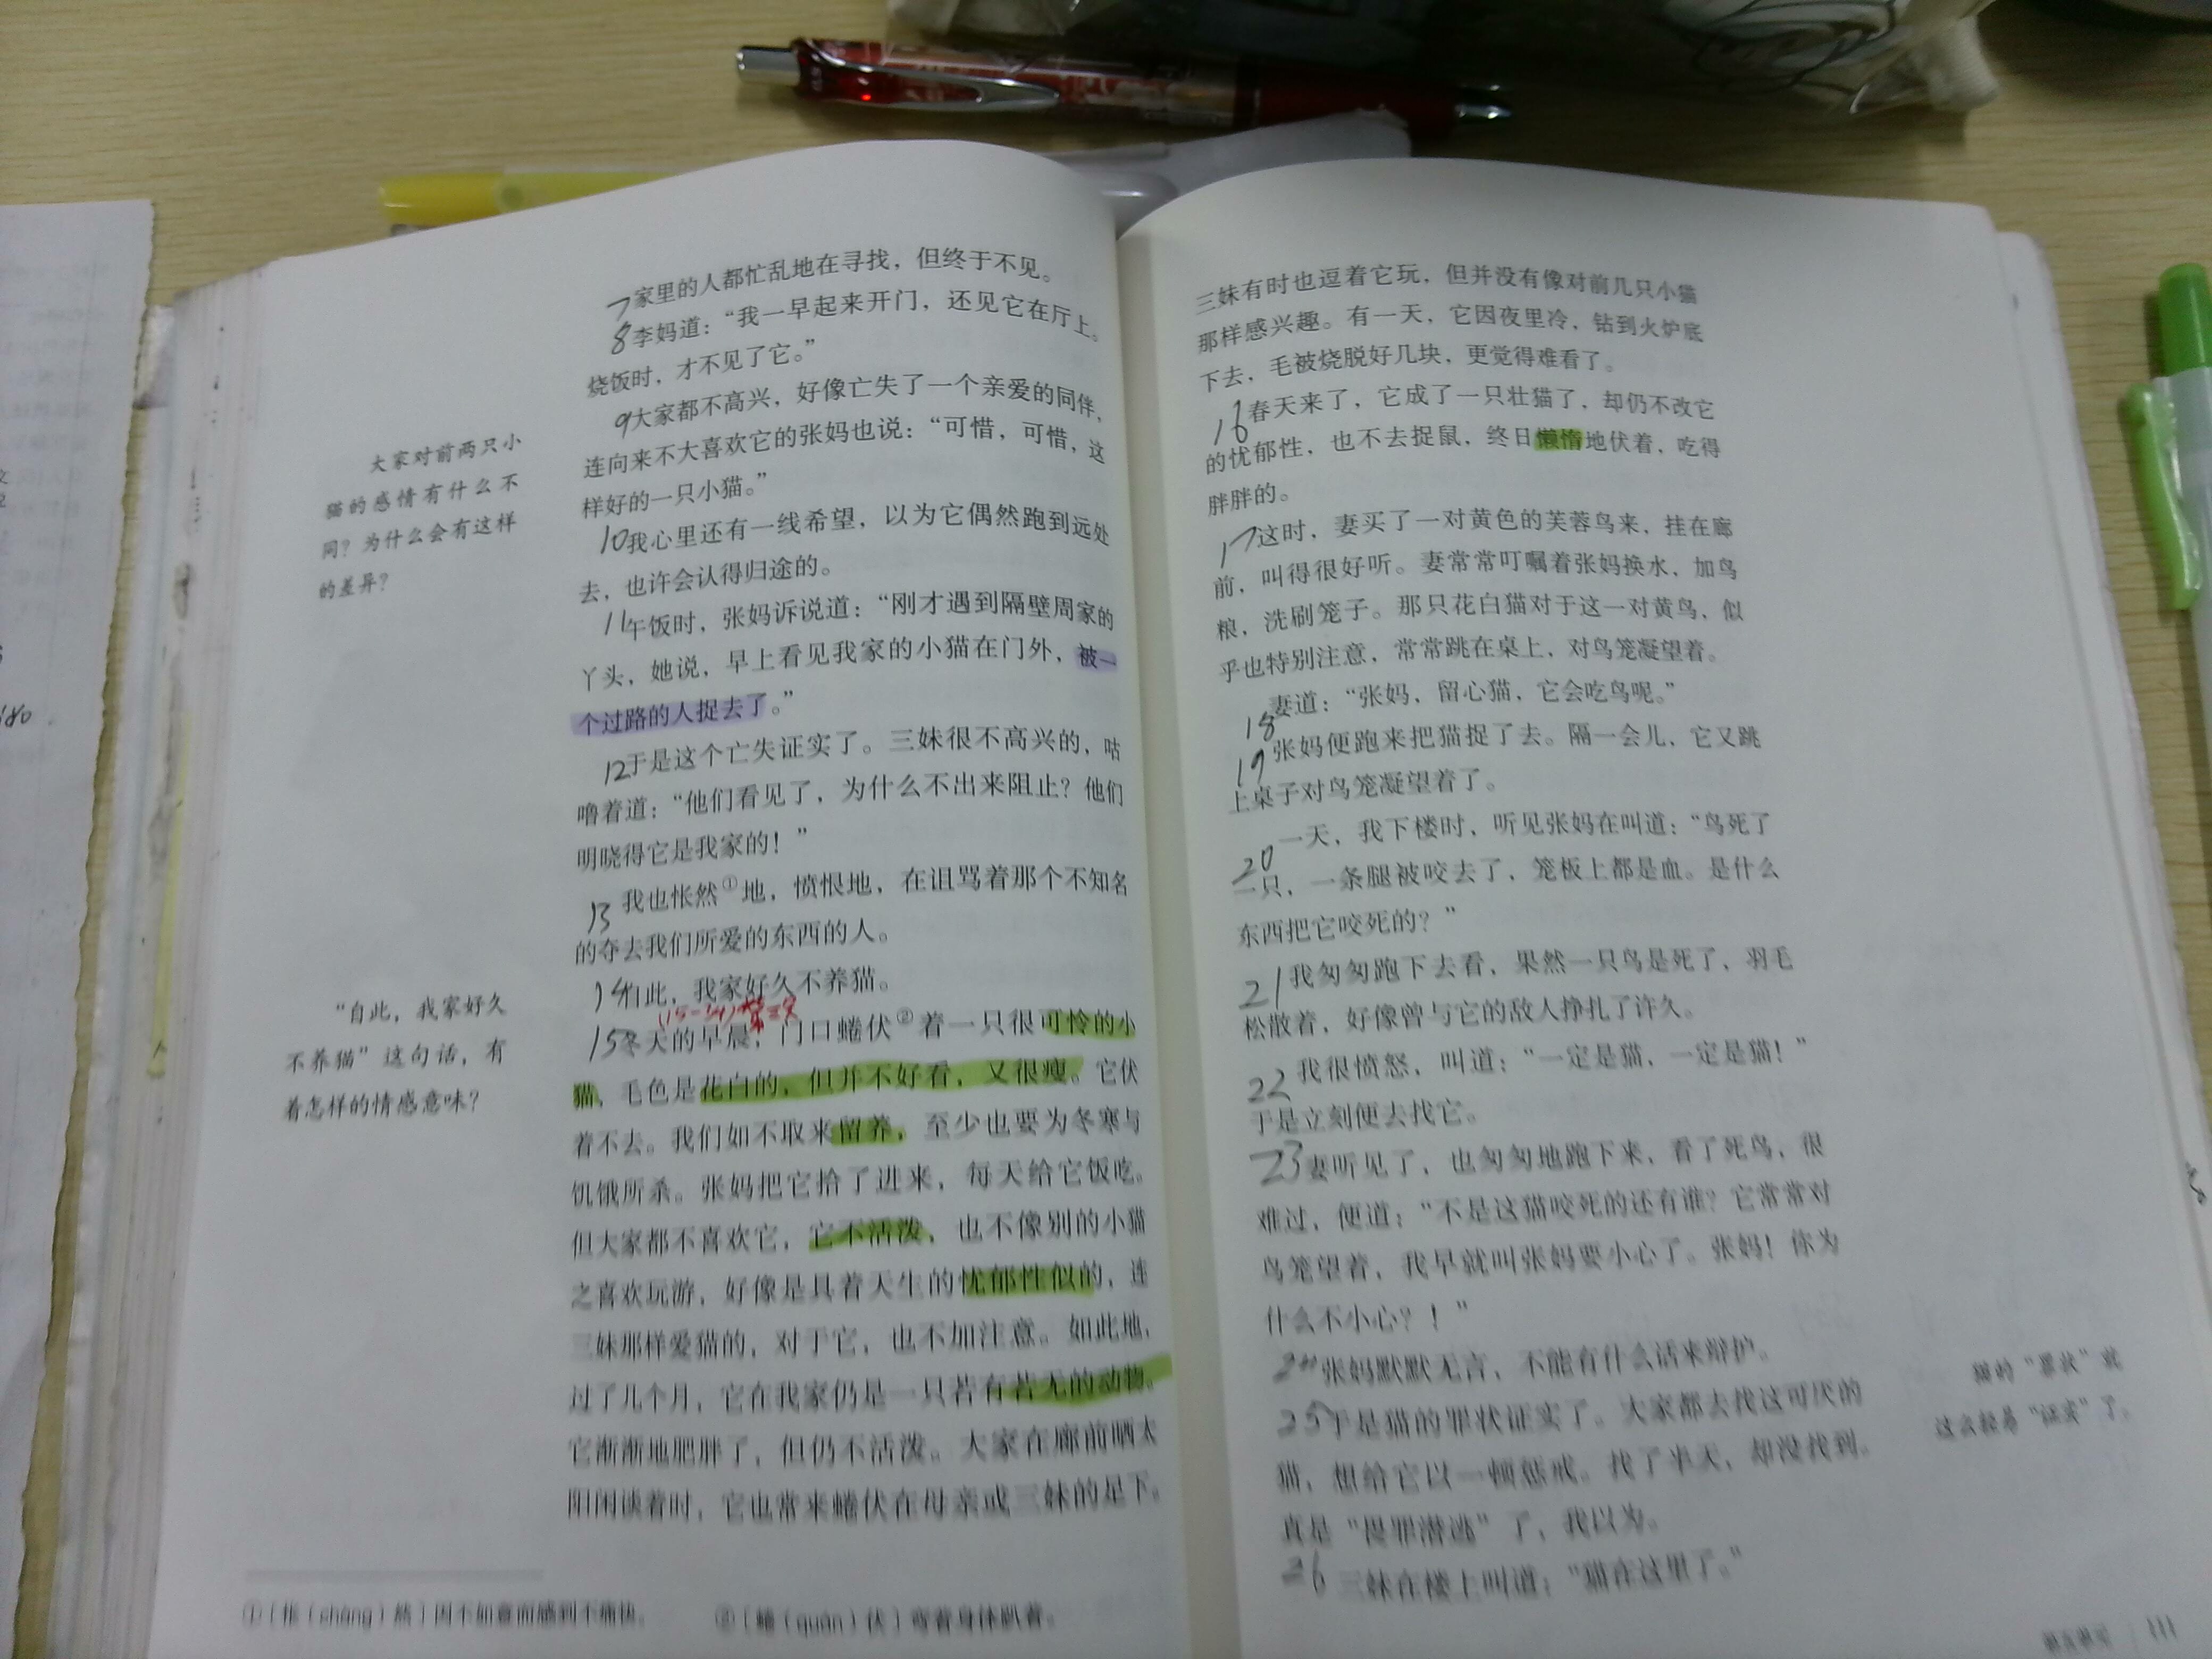 7家里的人都忙乱地在寻找，但终于不见。
8李妈道：“我一早起来开门，还见它在厅上。
烧饭时，才不见了它。”
9大家都不高兴，好像亡失了一个亲爱的同伴，
连向来不大喜欢它的张妈也说：“可惜，可惜，这
样好的一只小猫。”
10我心里还有一线希望，以为它偶然跑到远处
去，也许会认得归途的。
11午饭时，张妈诉说道：“刚才遇到隔壁周家的
丫头，她说，早上看见我家的小猫在门外，被一
个过路的人捉去了。”
12于是这个亡失证实了。三妹很不高兴的，咕
噜着道：“他们看见了，为什么不出来阻止？他们
明晓得它是我家的！”
13我也怅然①地，愤恨地，在诅骂着那个不知名
的夺去我们所爱的东西的人。
14自此，我家好久不养猫。
(15-34)第三只
15冬天的早晨，门口蜷伏②着一只很可怜的小
猫，毛色是花白的，但并不好看，又很瘦。它伏
着不去。我们如不取来留养，至少也要为冬寒与
饥饿所杀。张妈把它拾了进来，每天给它饭吃。
但大家都不喜欢它，它不活泼，也不像别的小猫
之喜欢玩游，好像是具着天生的忧郁性似的，连
三妹那样爱猫的，对于它，也不加注意。如此地，
过了几个月，它在我家仍是一只若有若无的动物。
它渐渐地肥胖了，但仍不活泼。大家在廊前晒太
阳闲谈着时，它也常来蜷伏在母亲或三妹的足下。
大家对前两只小
猫的感情有什么不
同？为什么会有这样
的差异？
“自此，我家好久
不养猫”这句话，有
着怎样的情感意味？
①〔怅（chàng）然〕因不如意而感到不痛快。
②〔蜷（quán）伏〕弯着身体趴着。
180
三妹有时也逗着它玩，但并没有像对前几只小猫
那样感兴趣。有一天，它因夜里冷，钻到火炉底
下去，毛被烧脱好几块，更觉得难看了。
16春天来了，它成了一只壮猫了，却仍不改它
的忧郁性，也不去捉鼠，终日懒惰地伏着，吃得
胖胖的。
17这时，妻买了一对黄色的芙蓉鸟来，挂在廊
前，叫得很好听。妻常常叮嘱着张妈换水，加鸟
粮，洗刷笼子。那只花白猫对于这一对黄鸟，似
乎也特别注意，常常跳在桌上，对鸟笼凝望着。
18妻道：“张妈，留心猫，它会吃鸟呢。”
19张妈便跑来把猫捉了去。隔一会儿，它又跳
上桌子对鸟笼凝望着了。
20一天，我下楼时，听见张妈在叫道：“鸟死了
一只，一条腿被咬去了，笼板上都是血。是什么
东西把它咬死的？”
21我匆匆跑下去看，果然一只鸟是死了，羽毛
松散着，好像曾与它的敌人挣扎了许久。
22我很愤怒，叫道：“一定是猫，一定是猫！”
于是立刻便去找它。
23妻听见了，也匆匆地跑下来，看了死鸟，很
难过，便道：“不是这猫咬死的还有谁？它常常对
鸟笼望着，我早就叫张妈要小心了。张妈！你为
什么不小心？！”
24张妈默默无言，不能有什么话来辩护。
25于是猫的罪状证实了。大家都去找这可厌的
猫，想给它以一顿惩戒。找了半天，却没找到。
真是“畏罪潜逃”了，我以为。
26三妹在楼上叫道：“猫在这里了。”
猫的“罪状”就
这么轻易“证实”了。
第五单元 111